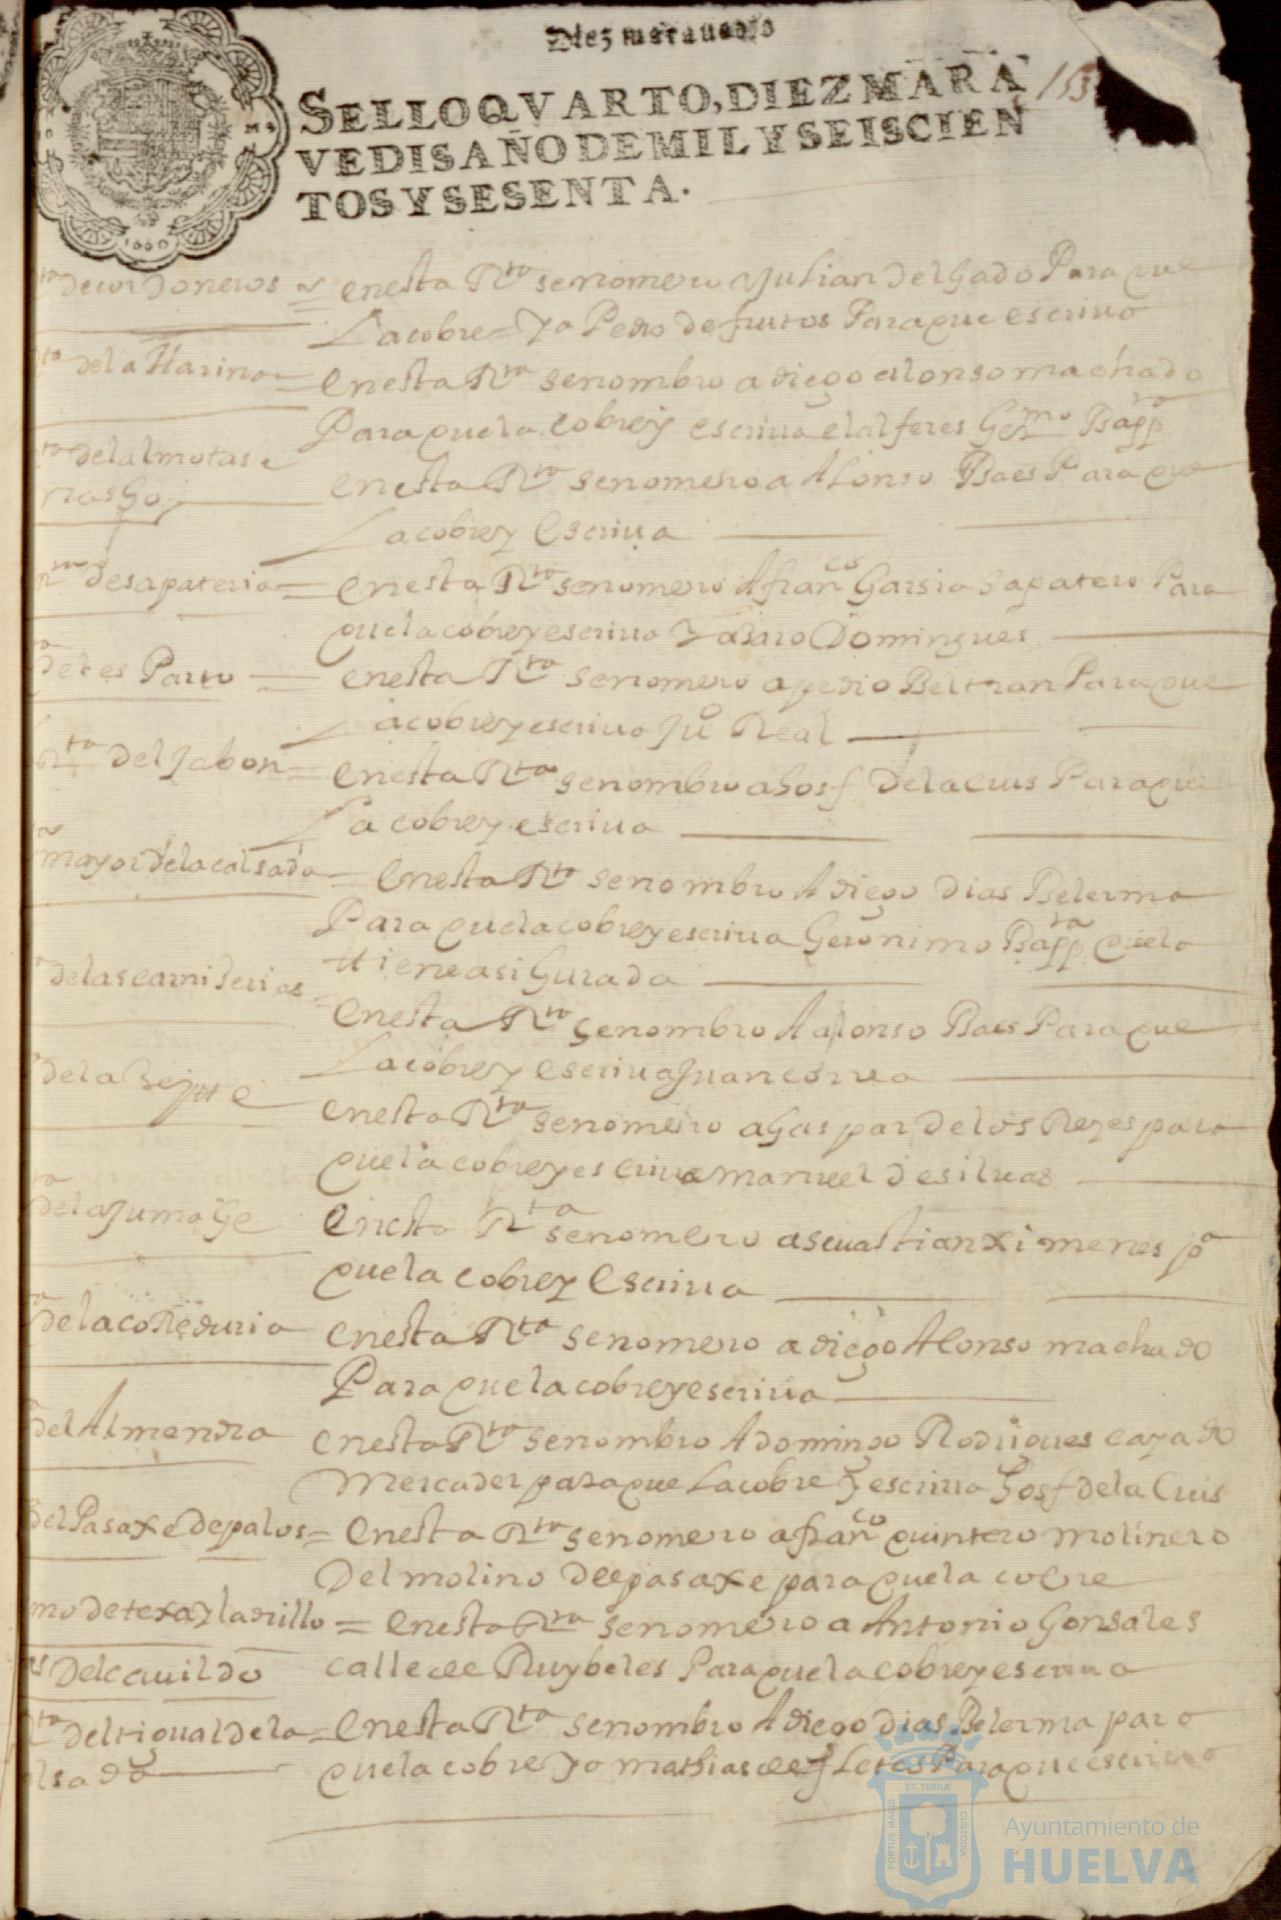 Diez maravedis
SELLO QVARTO, DIEZ MARA
VEDIS AÑO DE MIL Y SEISCIEN
TOS Y SESENTA.
153
1660
ta de cordoneros = en esta Rta se nomero Julian delgado Para que
La cobre = Ya Pedro de frutos Para que escriua
ta de la Harina = en esta Rta se nombro a diego alonso machado
Para que la cobre y escriua el alferes Germo Bapp ra
ta del almotase
en esta Rta se nomero a Alonso Baes Para que
La cobre y Escriua
de sapateria = en esta Rta se nomero A franco Garsia sapatero Para
que la cobre y escriua Domingues
del es Parto = en esta Rta se nomero a pedro Beltran Para que
La cobre y escriua Juo Real
Rta del Jabon = en esta Rta se nombro a Josf de la Cruis Para que
La cobre y escriua
mayor de la calsada = En esta Rta se nombro A diego dias Belerma
Para que la cobre y escriua Geronimo Bapp ra que la
tiene asi Gurada
de las carniserias = En esta Rta se nombro A alonso Baes Para que
La cobre y escriua Juan corea
de la
en esta Rta se nomero a Gaspar de los Reyes para
que la cobre y escriua manuel de siluas
En esta Rta se nomero a seuastian ximenes pa
que la cobre y Escriua
de la coReduria en esta Rta se nomero a diego Alonso machado
Para que la cobre y escriua
del Almendra en esta Rta se nombro A domingo Rodrigues
Mercader para que La cobre y escriua Josf de la Cruis
del Pasaxe de palos = En esta Rta se nomero a franco quintero molinero
Del molino dee pasaxe para que la cobre
mo de texa y ladrillo = en esta Rta se nomero a Antonio Gonsales
Del cauildo calle de Ruybeles Para que la cobre y escriua
ta del tigual de la = En esta Rta se nombro A diego dias Belerma para
lsada que la cobre Ya mathias de Para que escriua
PORTUS MARIS
ET TERRA
CUSTODIA
Ayuntamiento de
HUELVA